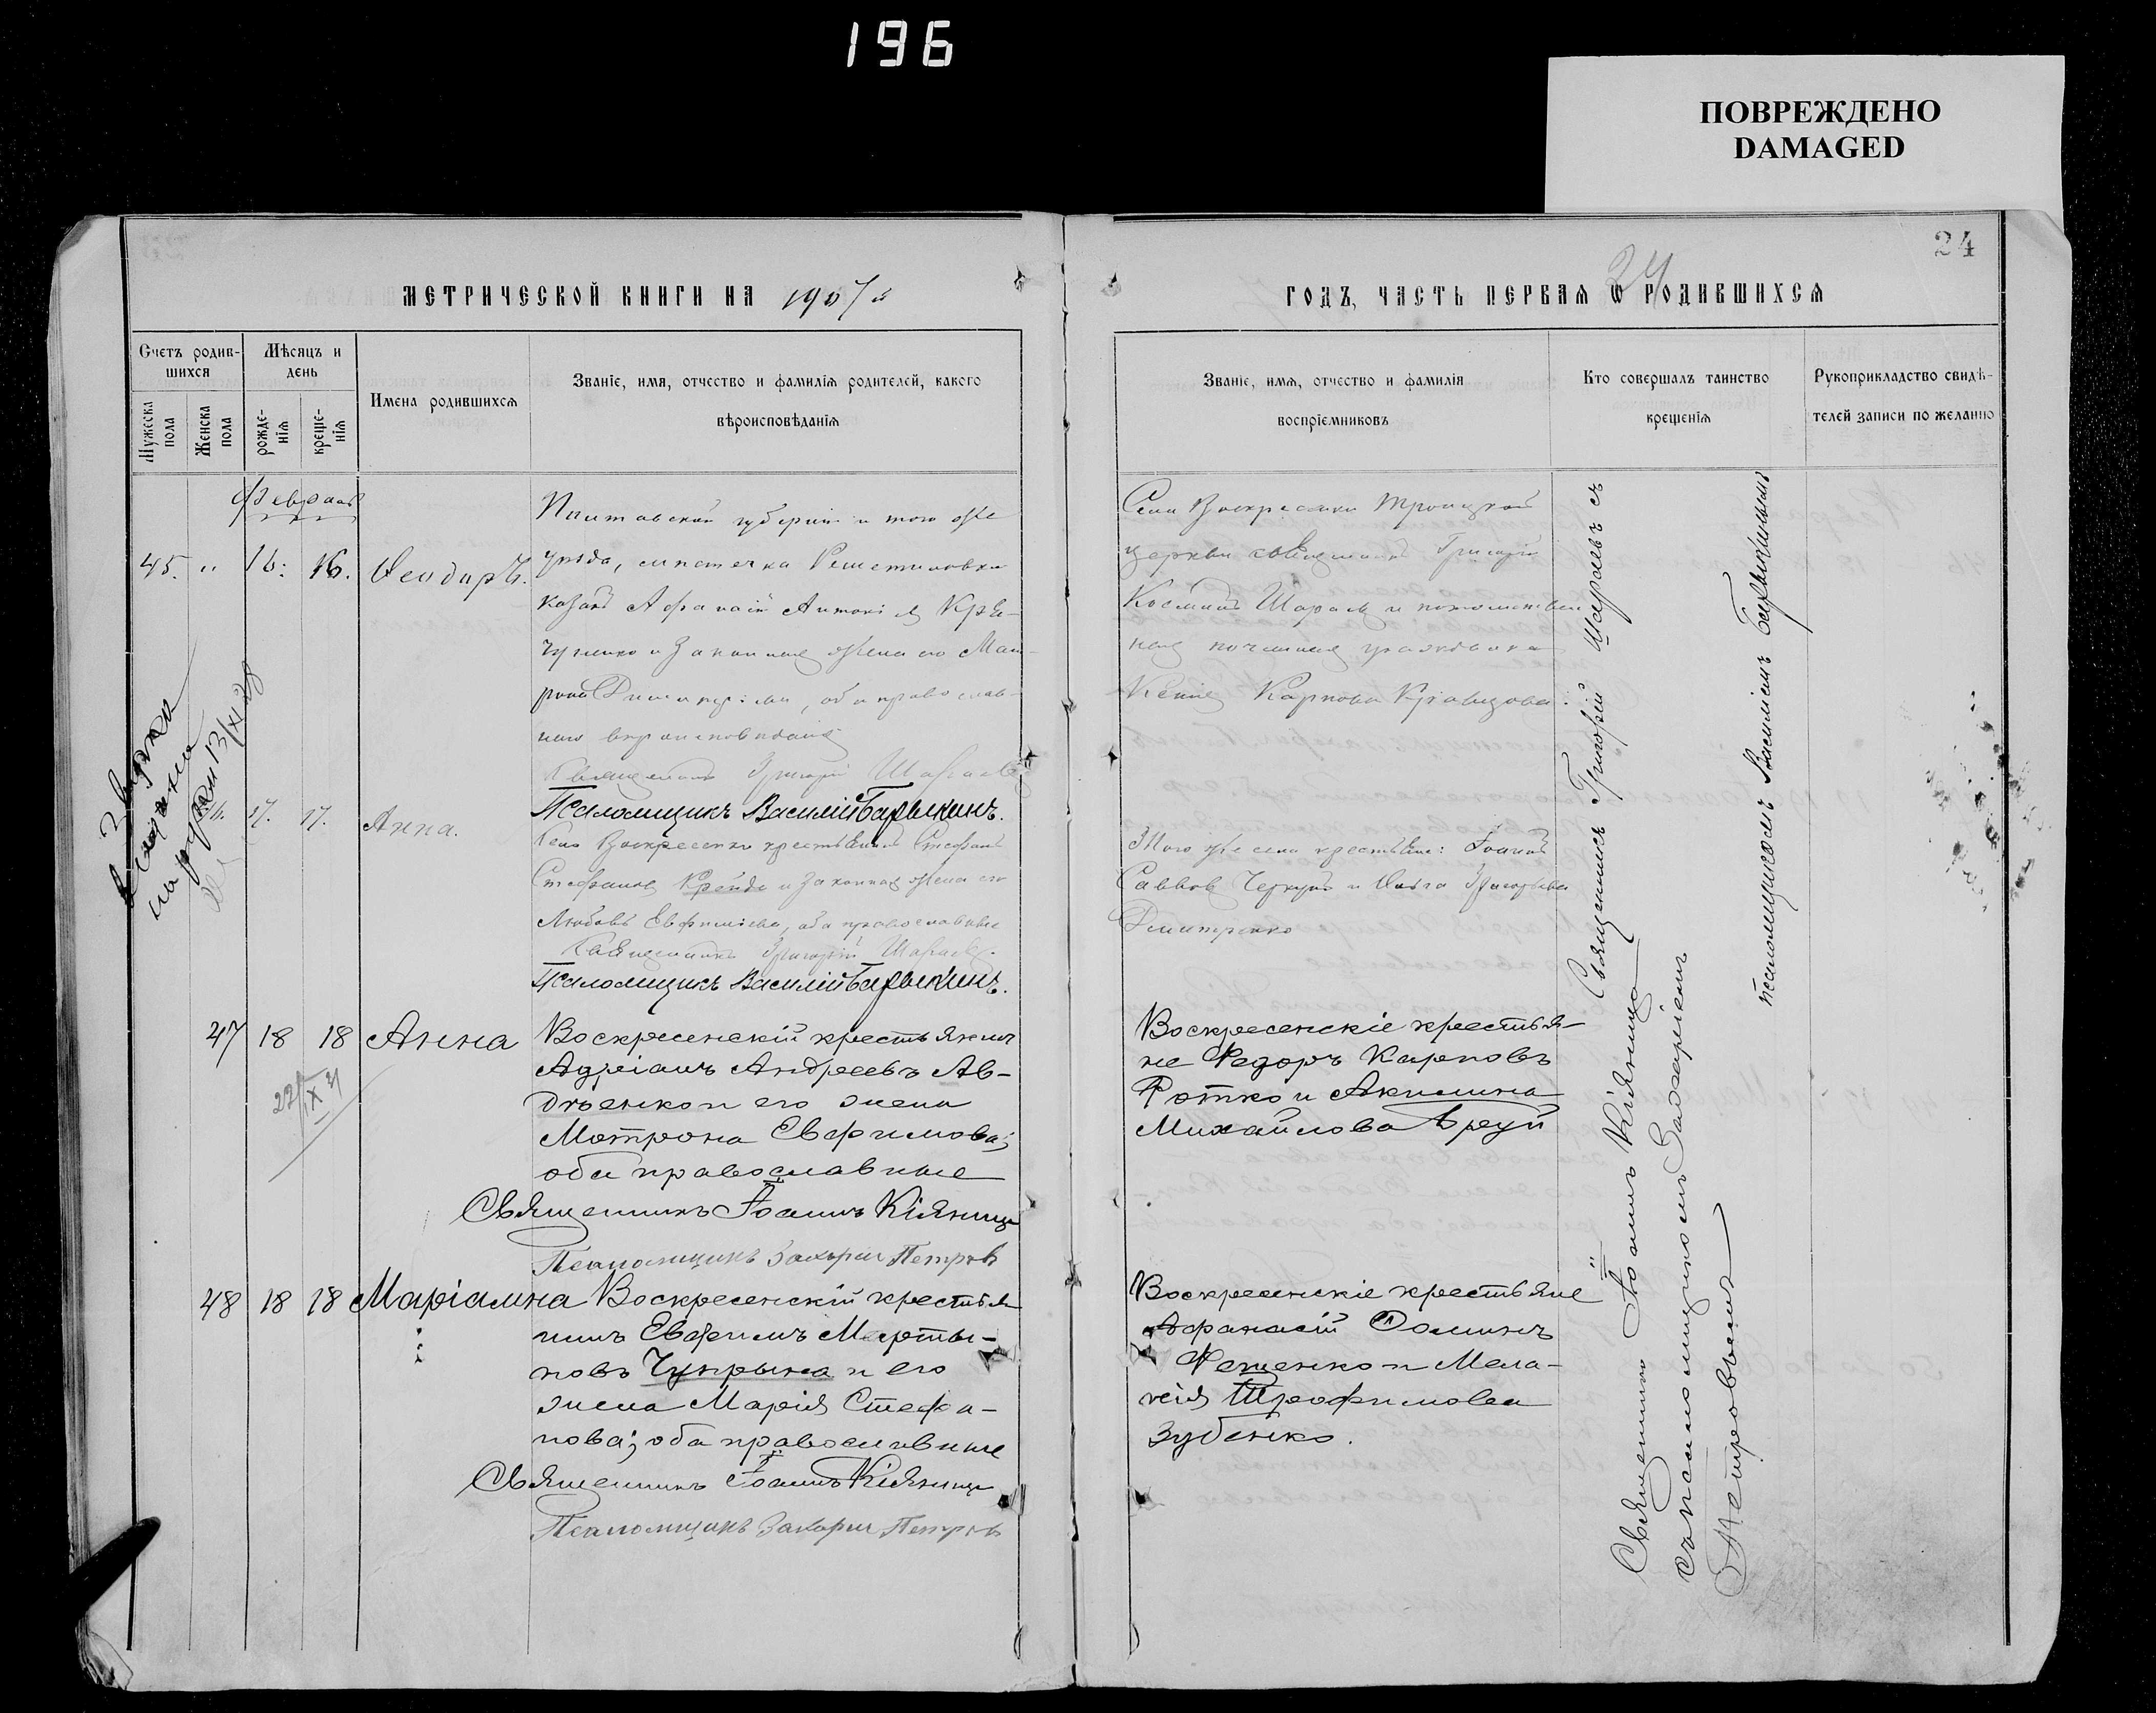 196
ПОВРЕЖДЕНО
DAMAGED
24
24
МЕТРИЧЕСКОЙ КНИГИ НА 1907 й
ГОДЪ, ЧАСТЬ ПЕРВАЯ Ѿ РОДИВШИХСѦ
Счетъ родив-
шихся
Мужеска пола
Женска пола
Мѣсяцъ и день
рожде-
нія
креще-
нія
Имена родившихся
Званіе, имя, отчество и фамилія родителей, какого
вѣроисповѣданія
Званіе, имя, отчество и фамилія
воспріемниковъ
Кто совершалъ таинство
крещенія
Рукоприкладство свидѣ-
телей записи по желанію
Февраль
45. " 16. 16. Ѳеодоръ.
Полтавской губерніи и того же
уѣзда, мѣстечка Решетиловки
казакъ Афанасій Антоніевъ
и законная жена его Мат-
рона Димитріева, оба православ-
наго вѣроисповѣданія
Священникъ Григорій Шараевъ
Псаломщикъ Василій Барыкинъ.
Села Воскресенки Троицкой
церкви священникъ Григорій
Косминъ Шараевъ и потомствен
ная почетная гражданка
Карпова Кравцова.
17. 17. Анна.
Села Воскресенки крестьянинъ Стефанъ
Стефановъ Крейда и законная жена его
Любовь Евфиміева, оба православные
Священникъ Григорій Шараевъ.
Псаломщикъ Василій Барыкинъ.
Того же села крестьяне: Іоаннъ
Саввовъ и Ольга Григорьева
Дмитренко
Священникъ Григорій Шараевъ съ
псаломщикомъ Василіемъ Барыкинымъ
Звірка
13/XI 28
47 18 18 Анна
22/IX 31
Воскресенскій крестьянинъ
Адріанъ Андреевъ Ав-
дѣенко и его жена
Мотрона Евфимова;
оба православные
Священникъ Іоаннъ Кіяница
Псаломщикъ Захарій Петровъ
Воскресенскіе крестья-
не Федоръ Карповъ
Ротко и Акилина
Михайлова
48 18 18 Маріамна
Воскресенскій крестья
нинъ Евфимъ Марты-
новъ Чупрына и его
жена Марія Стефа-
нова; оба православные
Священникъ Іоаннъ Кіяница
Псаломщикъ Захарій Петровъ
Воскресенскіе крестьяне
Афанасій Ѳоминъ
Фещенко и Мела-
нія Трофимова
Зубенко.
Священникъ Іоаннъ Кіяница
съ псаломщикомъ Захаріемъ
Петровымъ